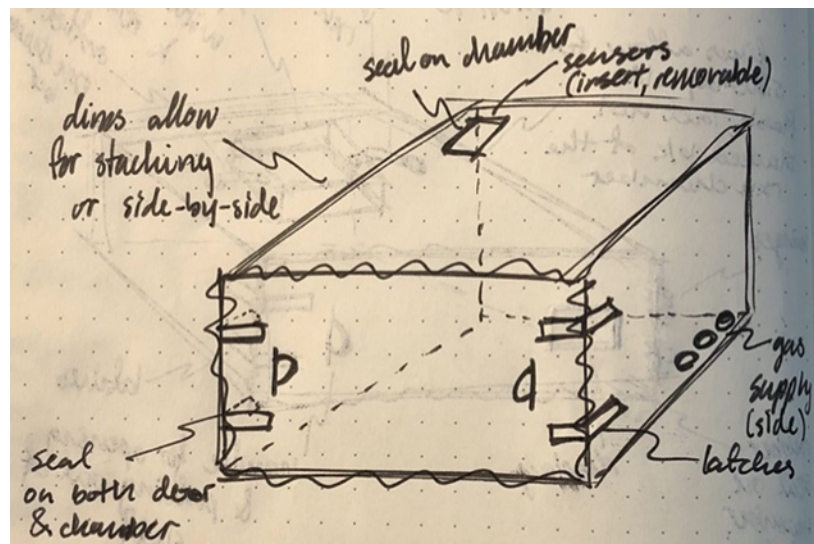 seal on chamber
sensers
(insert, removable)
dims allow
for stacking
or side-by-side
gas
supply
(side)
latches
seal
on both door
& chamber